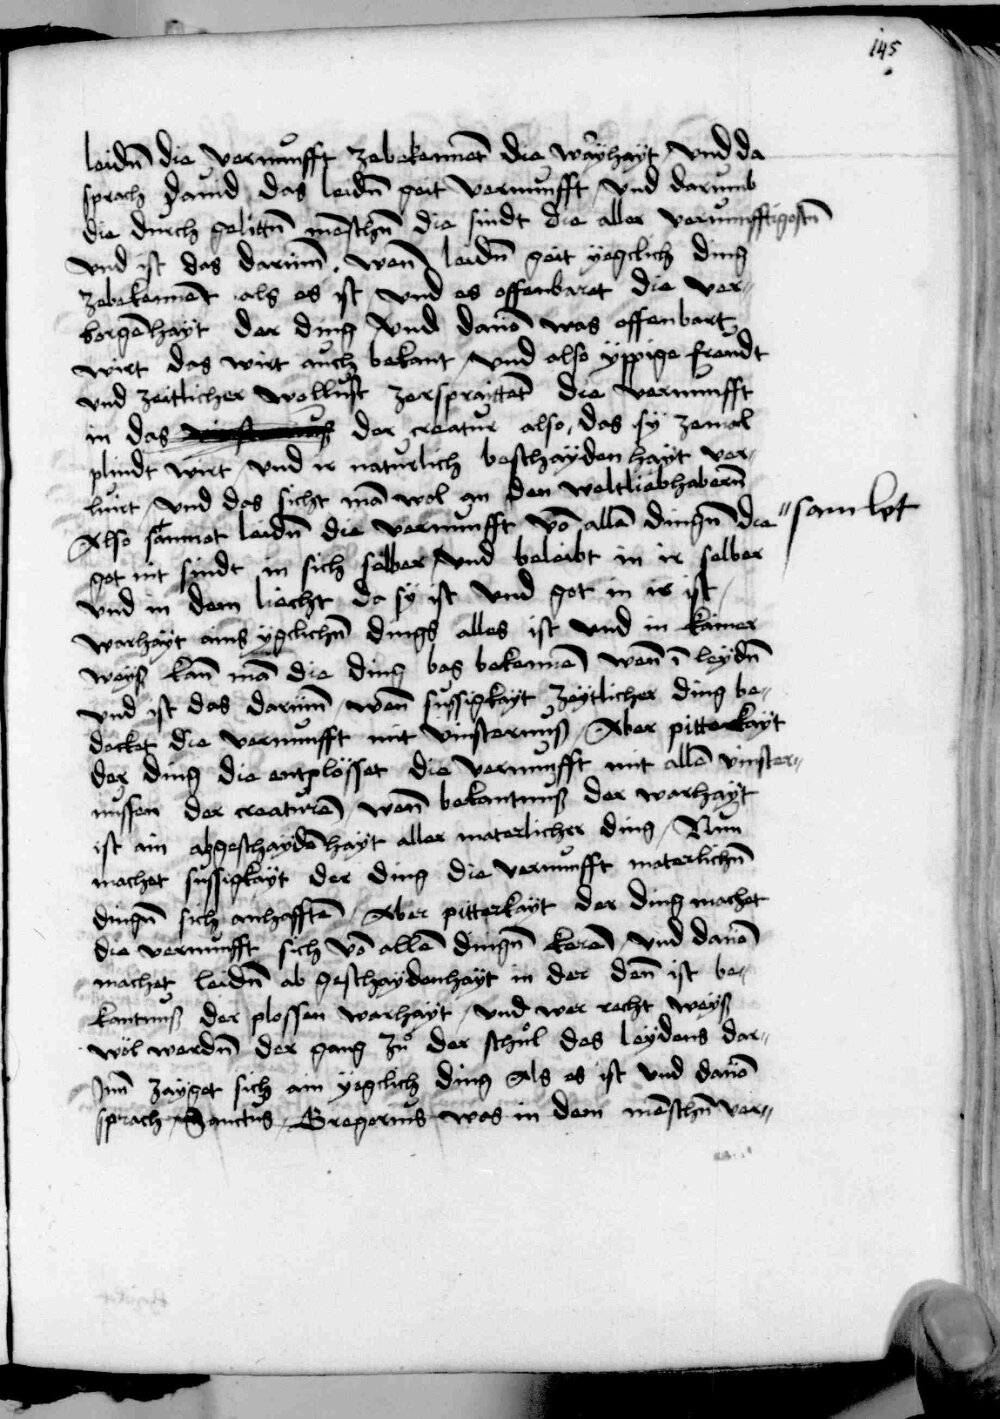 145
leidn̄ die vernunfft zebekennēt die warhayt / vnd da
sprach dauid das leidn̄ geit vernunfft / vnd darumb
die durch gelittn̄ mēschn̄ die sindt die aller vernunfftigostn̄
vnd ist das darūm . wen̄ leidn̄ geit yegclich ding
zebekennēt als es ist vnd es offenbaret die ver-
borgēhayt der ding Vnd dauō was offenbart
wirt das wirt auch bekant / vnd also üppige freudt
vnd zeitlicher wollust zerspraittet die vernunfft
in das der creatur also, das sy zemol
plindt wirt / vnd ir naturlich beschaydenhayt ver-
lurt / vnd das sicht mā wol an den weltliebhabern̄
Also samnet leidn̄ die vernunfft vō allē dingn̄ die "samlet
got nit sindt in sich selber / vnd beleibt in ir selber
vnd in dem liecht da sy ist vnd got in ir ist /
warhayt ains ygclichn̄ dings alles ist vnd in kainer
weyß kan̄ mā die ding bas bekennē wen̄ ī leydn̄
vnd ist das darūm / wen̄ sussigkayt zeytlicher ding be-
decket die vernunfft mit vinsternuß / Aber pitterkayt
der ding die entplösset die vernunfft mit allē vinster-
nussen der creaturē / wen̄ bekantnuß der warhayt
ist ain abgeschaydēhayt aller materlicher ding / Nun
machet sussigkayt der ding die vernunfft materlichn̄
dingn̄ sich anhafftē / Aber pitterkayt der ding machet
die vernunfft sich vō allē dingn̄ kerē / vnd dauō
machet leidn̄ ab geschaydenhayt in der den̄ ist be-
kantnuß der plossen warhayt / vnd wer recht weyß
wöl werdn̄ der gang zů der schůl des leydens dar-
Jnn̄ zayget sich ain yegclich ding Als es ist vnd dauō
sprach Sanctus Gregorius was in dem mēschn̄ ver-